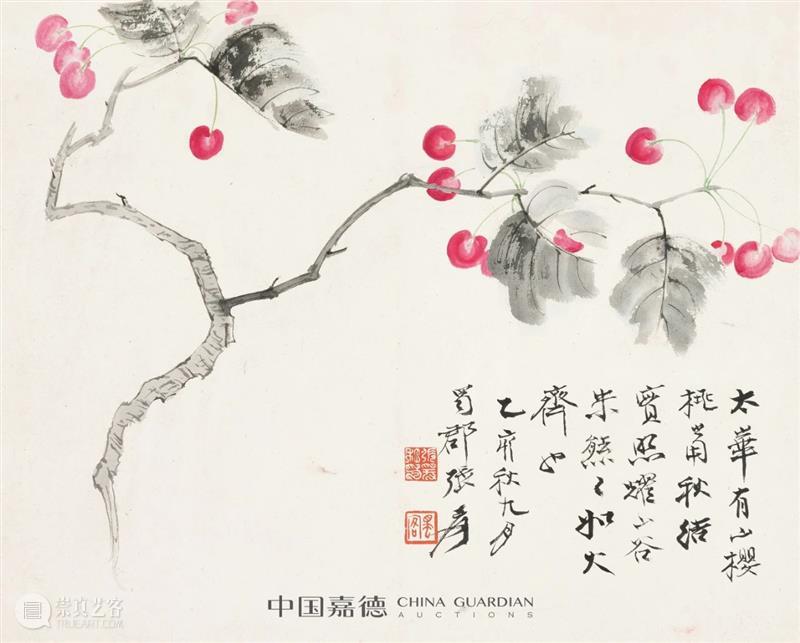 太華有山櫻
桃當秋結
實照耀山谷
朱熊〻如火
齊也
乙亥秋九月
蜀郡張爰
崇真艺客
中国嘉德 CHINA GUARDIAN
AUCTIONS